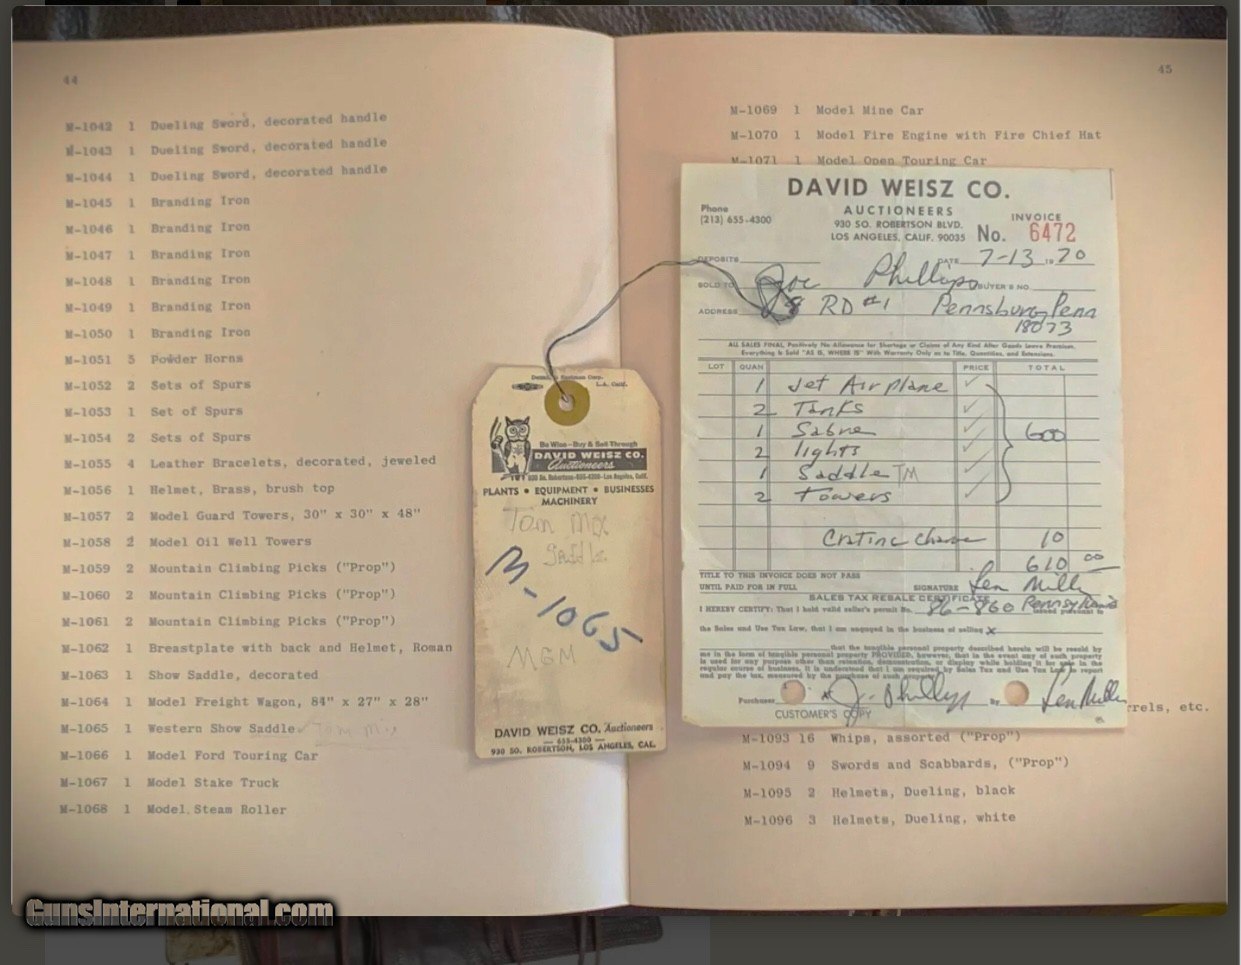 44
M-1042 1 Dueling Sword, decorated handle
M-1043 1 Dueling Sword, decorated handle
M-1044 1 Dueling Sword, decorated handle
M-1045 1 Branding Iron
M-1046 1 Branding Iron
M-1047 1 Branding Iron
M-1048 1 Branding Iron
M-1049 1 Branding Iron
M-1050 1 Branding Iron
M-1051 5 Powder Horns
M-1052 2 Sets of Spurs
M-1053 1 Set of Spurs
M-1054 2 Sets of Spurs
M-1055 4 Leather Bracelets, decorated, jeweled
M-1056 1 Helmet, Brass, brush top
M-1057 2 Model Guard Towers, 30" x 30" x 48"
M-1058 2 Model Oil Well Towers
M-1059 2 Mountain Climbing Picks ("Prop")
M-1060 2 Mountain Climbing Picks ("Prop")
M-1061 2 Mountain Climbing Picks ("Prop")
M-1062 1 Breastplate with back and Helmet, Roman
M-1063 1 Show Saddle, decorated
M-1064 1 Model Freight Wagon, 84" x 27" x 28"
M-1065 1 Western Show Saddle Tom Mix
M-1066 1 Model Ford Touring Car
M-1067 1 Model Stake Truck
M-1068 1 Model Steam Roller
L.A. Calif.
Be Wise-Buy & Sell Through
DAVID WEISZ CO.
Auctioneers
930 SO. Robertson-655-4300-Los Angeles, Calif.
PLANTS • EQUIPMENT • BUSINESSES
MACHINERY
Tom Mix
Saddle
M-1065
MGM
DAVID WEISZ CO. Auctioneers
— 655-4300 —
930 SO. ROBERTSON, LOS ANGELES, CAL.
45
M-1069 1 Model Mine Car
M-1070 1 Model Fire Engine with Fire Chief Hat
M-1071 1 Model Open Touring Car
DAVID WEISZ CO.
AUCTIONEERS
930 SO. ROBERTSON BLVD.
LOS ANGELES, CALIF. 90035
Phone
(213) 655-4300
INVOICE
No. 6472
DEPOSITS DATE 7-13 1970
SOLD TO Joe Phillips BUYER'S NO.
ADDRESS RD #1 Pennsburg Penn
18073
ALL SALES FINAL, Positively No Allowance for Shortage or Claims of Any Kind After Goods Leave Premises.
Everything is Sold "AS IS, WHERE IS" With Warranty Only as to Title, Quantities, and Extensions.
LOT QUAN PRICE TOTAL
1 Jet Airplane ✓
2 Tanks ✓
1 Sabre ✓ 600
2 lights ✓
1 Saddle TM ✓
2 Towers ✓
Crating Charge 10
610 00
TITLE TO THIS INVOICE DOES NOT PASS
UNTIL PAID FOR IN FULL SIGNATURE Len Milly
SALES TAX RESALE CERTIFICATE
I HEREBY CERTIFY: That I hold valid seller's permit No. 86-860 Pennsylvania issued pursuant to
the Sales and Use Tax Law, that I am engaged in the business of selling x
that the tangible personal property described herein will be resold by
me in the form of tangible personal property PROVIDED, however, that in the event any of such property
is used for any purpose other than retention, demonstration, or display while holding it for sale in the
regular course of business, it is understood that I am required by Sales Tax and Use Tax Law to report
and pay the tax, measured by the purchase of such property
Purchaser J. Phillips By Len Milly
CUSTOMER'S COPY
rrels, etc.
M-1093 16 Whips, assorted ("Prop")
M-1094 9 Swords and Scabbards, ("Prop")
M-1095 2 Helmets, Dueling, black
M-1096 3 Helmets, Dueling, white
GunsInternational.com